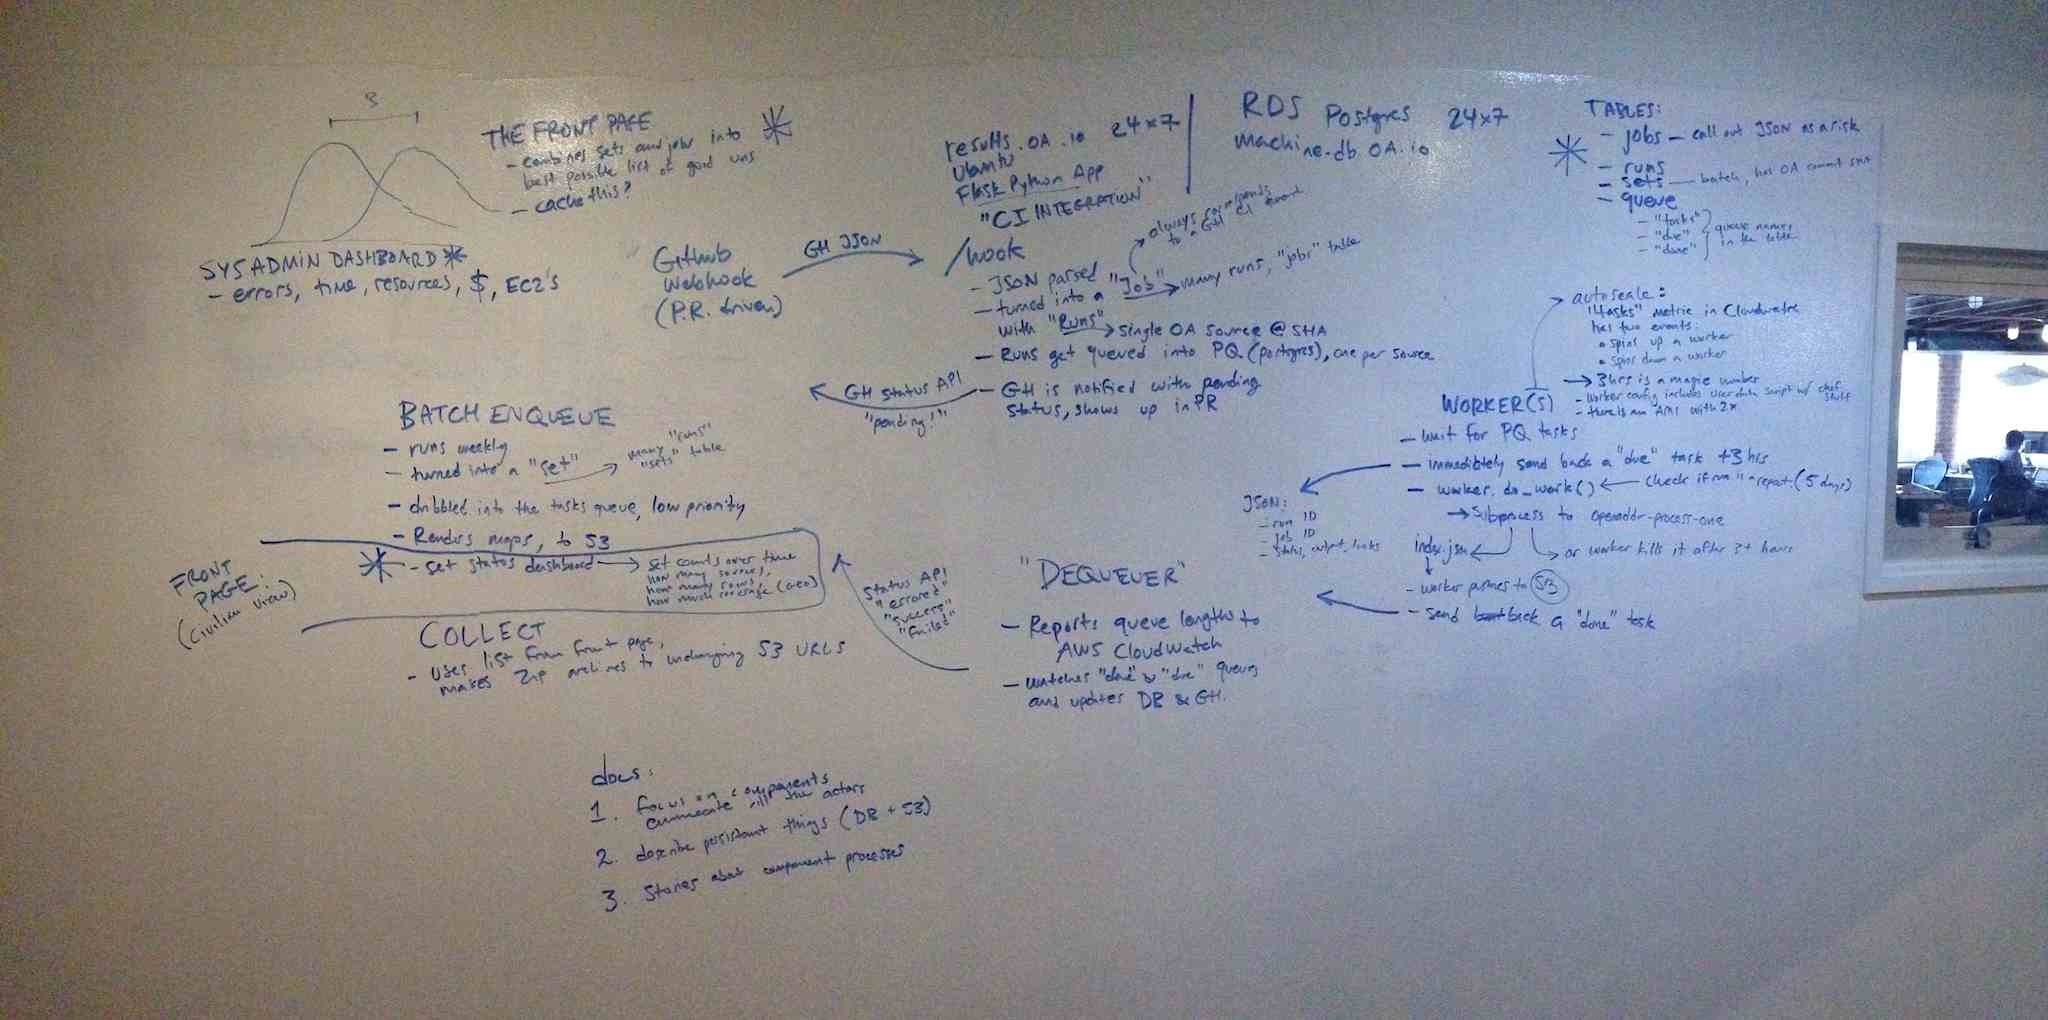 3
THE FRONT PAGE
- combines sets and jobs into
best possible list of good runs
- cache this?
SYSADMIN DASHBOARD
- errors, time, resources, $, EC2's
Github
Webhook
(P.R. driven)
GH JSON
results.OA.io 24x7
Ubuntu
Flask Python App
"CI INTEGRATION"
/hook
- JSON parsed
- turned into a "Job" → many runs, "jobs" table
always corresponds
to a GH CI event
with "Runs" → single OA source @ SHA
- Runs get queued into PQ (postgres), one per source
- GH is notified with pending
status, shows up in PR
GH Status API
"pending!"
RDS Postgres 24x7
machine-db OA.io
TABLES:
- jobs - call out JSON as a risk
- runs
- sets - batch, has OA commit SHA
- queue
- "tasks"
- "due"
- "done"
queue names
in the table
autoscale:
"tasks" metric in Cloudwatch
has two events:
• spins up a worker
• spins down a worker
→ 3hrs is a magic number
- worker config includes userdata script w/ chef
stuff
- there is an AMI with 2x
WORKER(S)
- wait for PQ tasks
- immediately send back a "due" task +3hrs
- worker.do_work() ← check if run is a repeat (5 days)
→ Subprocess to openaddr-process-one
index.json
or worker kills it after 3+ hours
- worker pushes to S3
- send back a "done" task
JSON:
- run ID
- job ID
- status, output, links
"DEQUEUER"
- Reports queue lengths to
AWS CloudWatch
- watches "done" & "due" queues
and updates DB & GH.
Status API
"errored"
"success"
"failed"
BATCH ENQUEUE
- runs weekly
- turned into a "set"
many "runs"
"sets" table
- dribbled into the tasks queue, low priority
- Renders maps, to S3
- set status dashboard → set counts over time
how many sources,
how many rows,
how much coverage (geo)
FRONT
PAGE:
(civilian view)
COLLECT
- uses list from front page,
makes Zip archives to unchanging S3 URLS
docs:
1. focus on components
enumerate all the actors
2. describe persistant things (DB + S3)
3. Stories about component processes